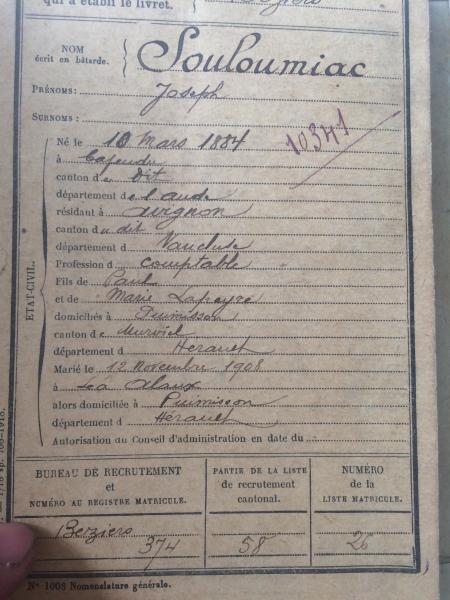 qui a établi le livret.
Béziers
NOM
écrit en bâtarde.
Souloumiac
PRÉNOMS: Joseph
SURNOMS:
Né le 10 Mars 1884
10341
à Capendu
canton de dit
département de l'aude
résidant à avignon
canton du dit
département d Vaucluse
Profession d comptable
Fils de Paul
et de Marie Lapeyre
domiciliés à Puimisson
canton de Murviel
département d Herault
Marié le 12 Novembre 1908
à
alors domiciliée à Puimisson
département d Herault
Autorisation du Conseil d'administration en date du
ÉTAT-CIVIL.
BUREAU DE RECRUTEMENT
et
NUMÉRO AU REGISTRE MATRICULE.
PARTIE DE LA LISTE
de recrutement
cantonal.
NUMÉRO
de la
LISTE MATRICULE.
Beziers
374
58
26
N° 1008 Nomenclature générale.